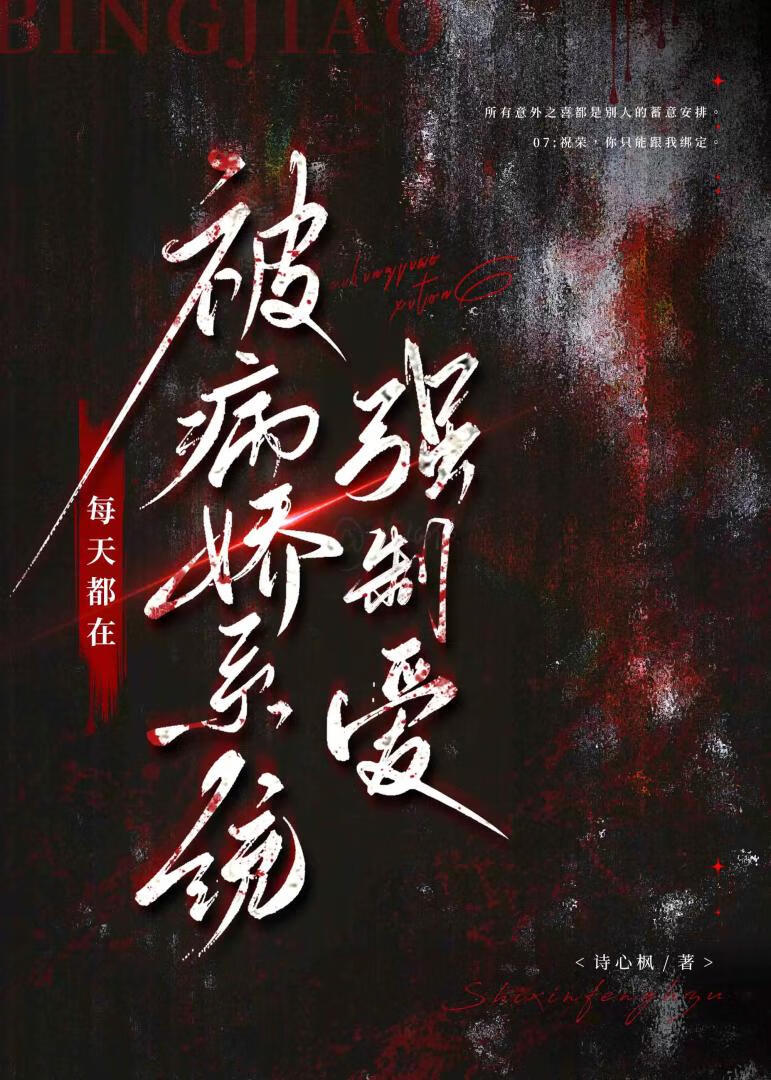 BINGJIAO
所有意外之喜都是别人的蓄意安排。
07:祝荣，你只能跟我绑定。
每天都在
被病娇系统
强制爱
<诗心枫/著>
Shixinfengzhu